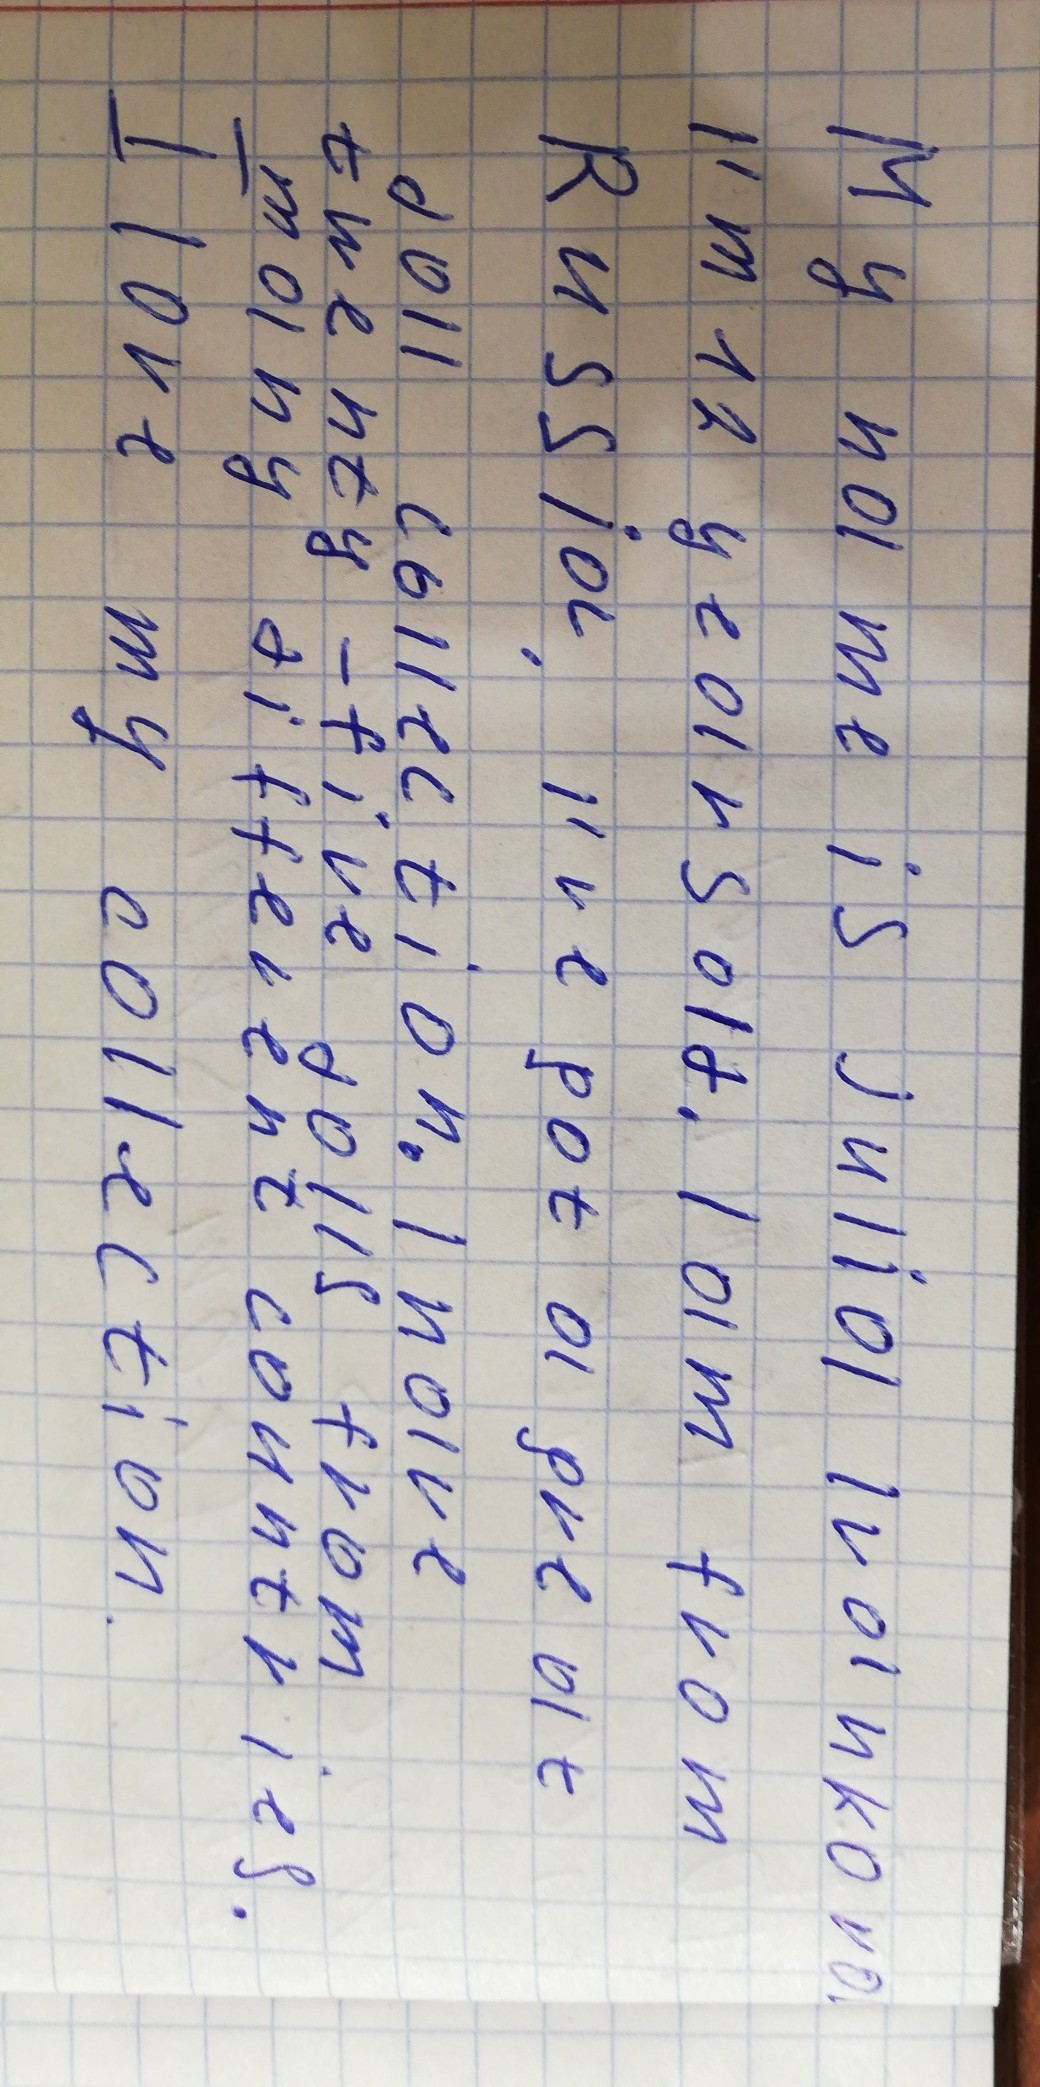 My name is Julia Ivankova.
I'm 12 years old. I am from
Russia. I've got a great
doll collection. I have
twenty-five dolls from
many different contries.
I love my collection.